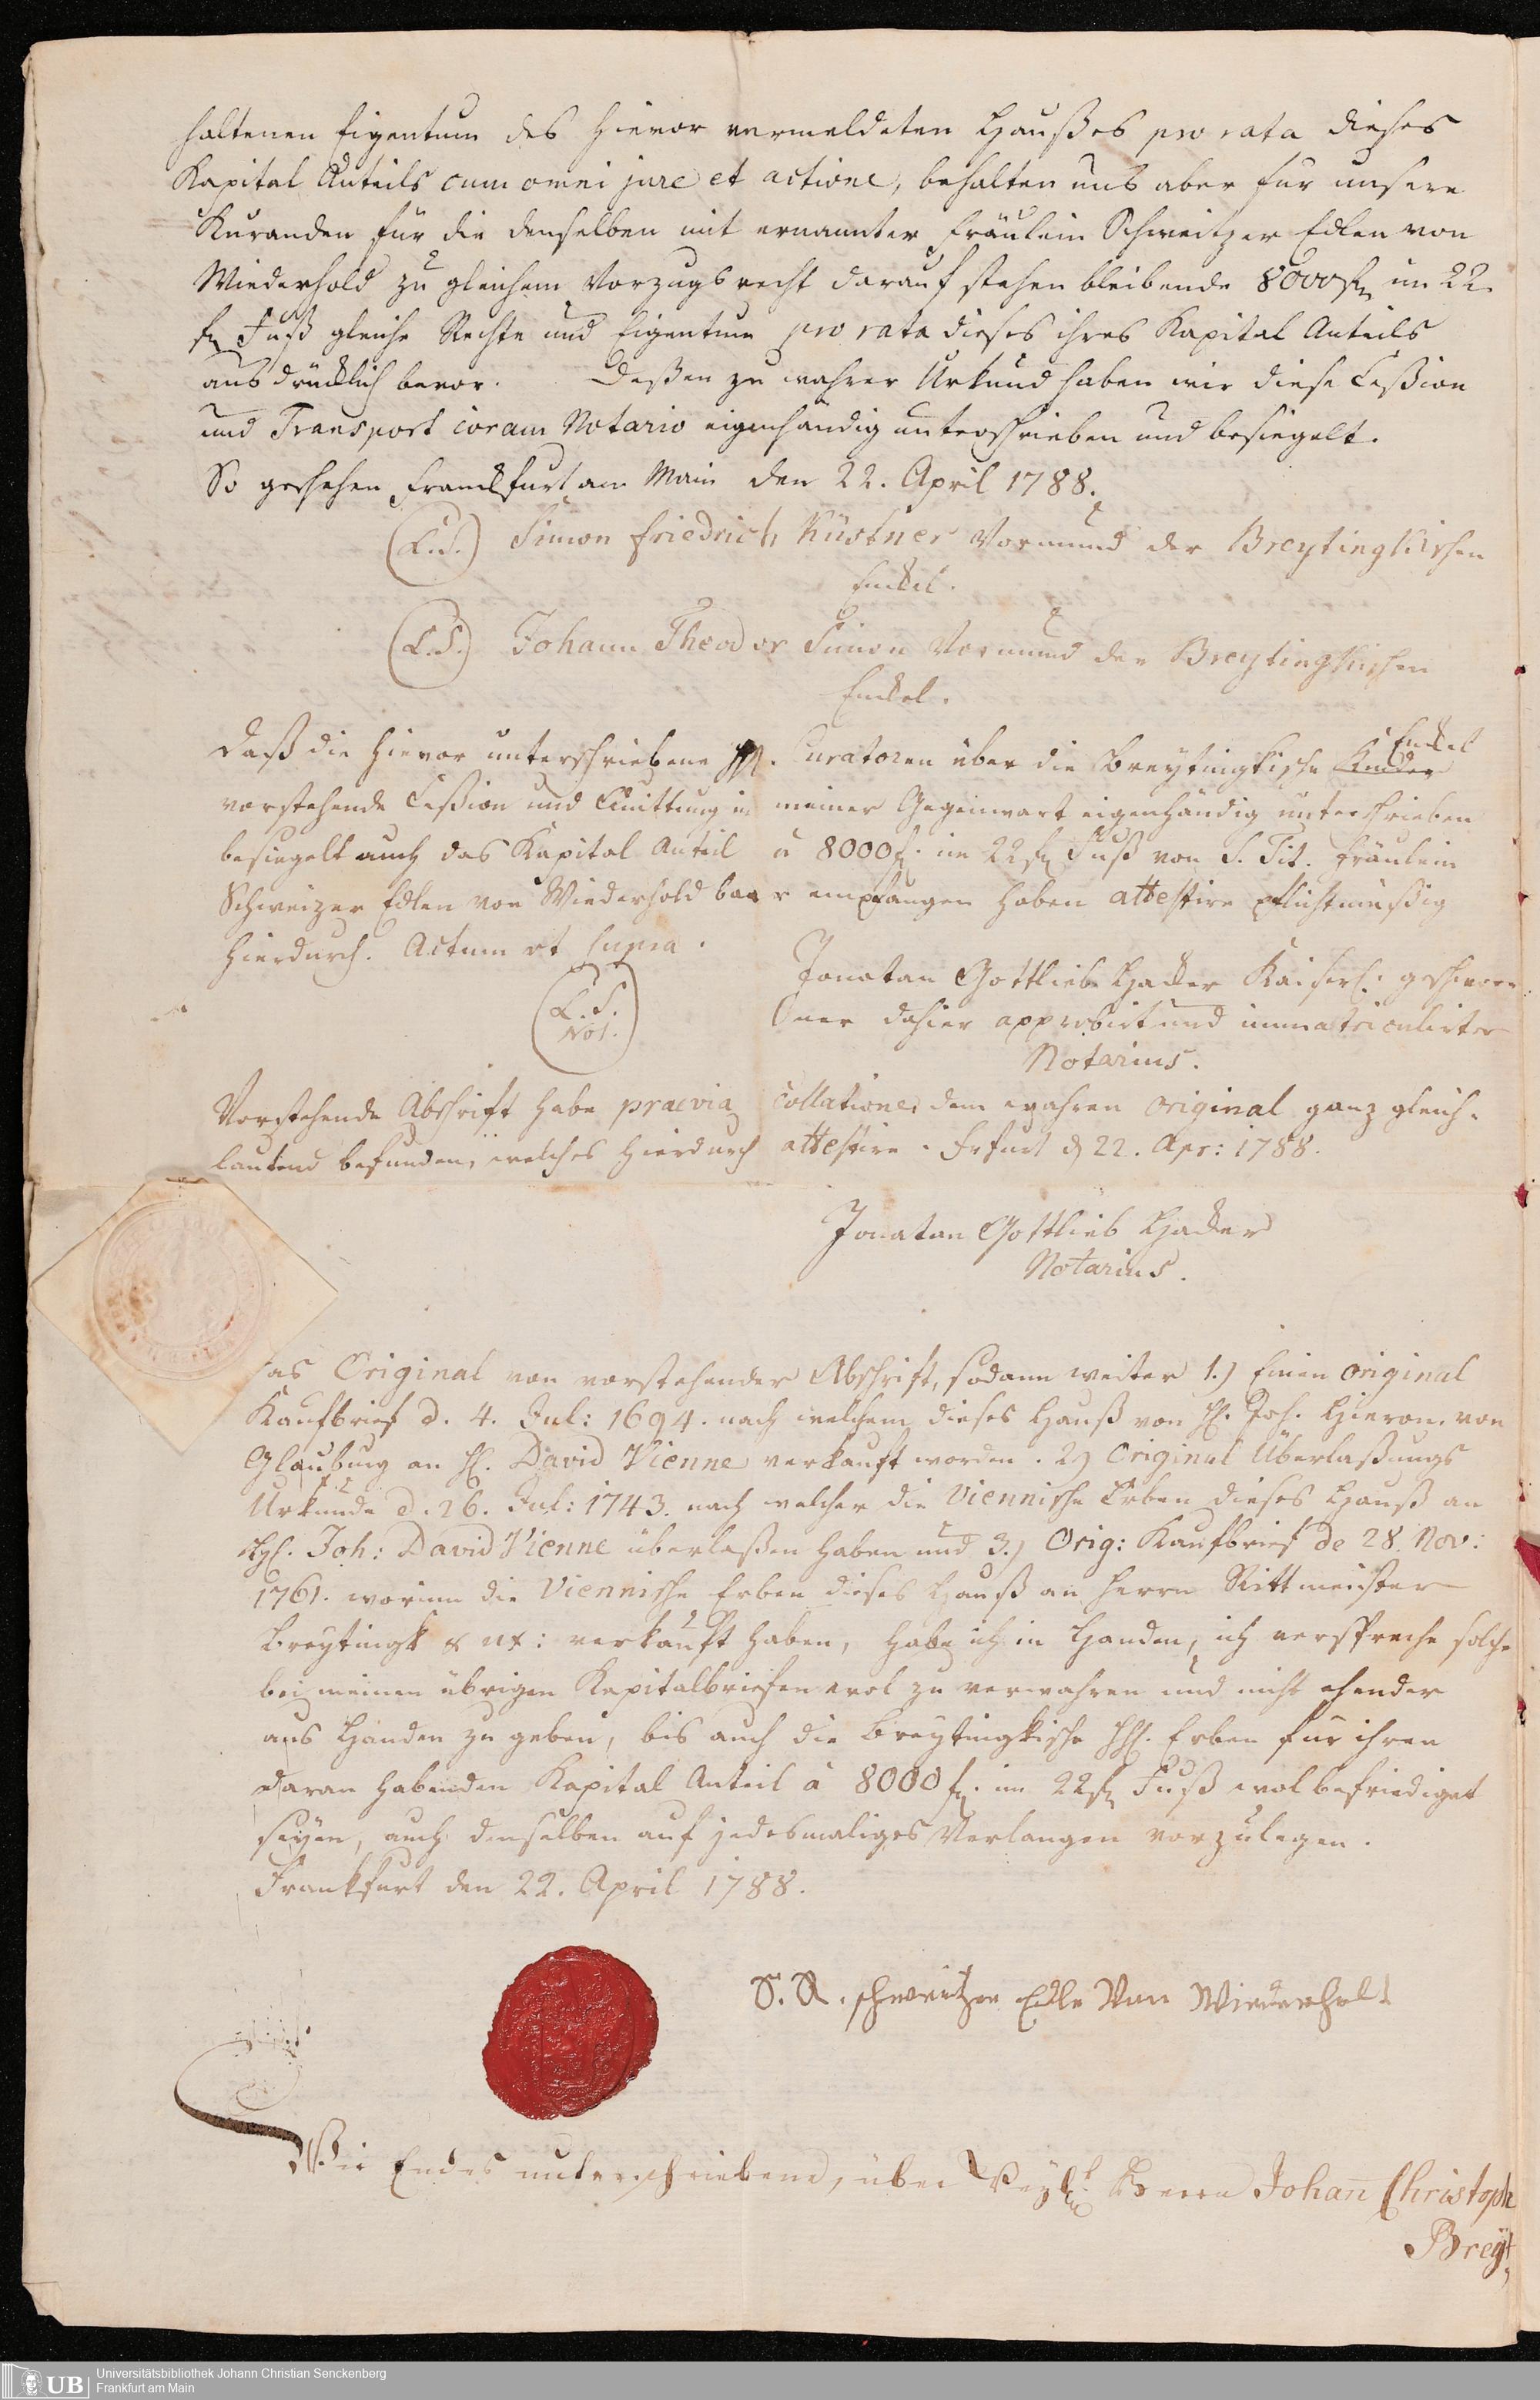 haltenen Eigentum des hievor vermeldeten Haußes pro rata dieses
Kapital Anteils cum omni jure et actione, behalten uns aber für unsere
Kuranden für die denselben mit ernannter Fräulein Schweitzer Edlen von
Wiederhold zu gleichem Vorzugsrecht darauf stehen bleibende 8000 fl im 22
fl Fuß gleiche Rechte und Eigentum pro rata dieses ihres Kapital Anteils
ausdrücklich bevor. Deßen zu wahrer Urkund haben wir diese Ceßion
und Transport coram Notario eigenhändig unterschrieben und besiegelt.
So geschehen Franckfurt am Main den 22. April 1788.
(L.S.) Simon Friedrich Küstner Vormund der Breytingkischen
Enckel.
(L.S.) Johann Theodor Simon Vormund der Breytingkischen
Enckel.
Daß die hievor unterschriebene HH. Curatoren über die Breytingkische Kinder Enckel
vorstehende Ceßion und Quittung in meiner Gegenwart eigenhändig unterschrieben
besiegelt auch das Kapital Anteil à 8000 f. im 22 fl Fuß von S. Tit. Fräulein
Schweizer Edlen von Wiederhold baar empfangen haben attestire pflichtmäßig
hierdurch. Actum ut supra.
Jonatan Gottlieb Hacker Kaiserl. geschworn
(L.S. Not.)
Oner dahier approbirt und immatriculirter
Notarius.
Vorstehende Abschrift habe praevia collatione, dem wahren Original ganz gleich-
lautend befunden, welches hierdurch attestire. Frfurt d 22. Apr: 1788.
Jonatan Gottlieb Hacker
Notarius.
as Original von vorstehender Abschrift, sodann weiter 1.) Einen original
Kaufbrief d. 4. Jul: 1694. nach welchem dieses Hauß von H. Joh. Hieron. von
Glauburg an H. David Vienne verkauft worden. 2) Original Überlaßungs
Urkunde d. 26. Jul: 1743. nach welcher die Viennische Erben dieses Hauß an
H. Joh: David Vienne überlaßen haben und 3.) Orig: Kaufbrief de 28. Nov:
1761. worinn die Viennische Erben dieses Hauß an Herrn Rittmeister
Breytingk & ux: verkauft haben, habe ich in Handen, ich verspreche solche
bei meinen übrigen Kapitalbriefen wol zu verwahren und nicht ehender
aus Handen zu geben, bis auch die Breytingkische HH. Erben für ihren
daran habenden Kapital Anteil à 8000 f. im 22 fl Fuß wol befriediget
seyen, auch denselben auf jedesmaliges Verlangen vorzulegen.
Frankfurt den 22. April 1788.
S. R. schweitzer Edle Von Wiederholt
Wir Endes unterschriebene, über Weyl. Herrn Johan Christoph
Breyt
UB Universitätsbibliothek Johann Christian Senckenberg
Frankfurt am Main